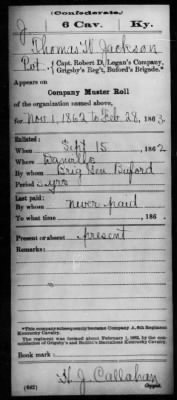 (Confederate.)
J 6 Cav. Ky.
Thomas W. Jackson
Pvt. { Capt. Robert D. Logan's Company, Grigsby's Reg't, Buford's Brigade.*
Appears on
Company Muster Roll
of the organization named above,
for Nov. 1, 1862 to Feb. 28, 1863
Enlisted:
When Sept 15, 1862
Where Danville
By whom Brig Gen Buford
Period 3 yrs
Last paid:
By whom never paid
To what time , 186 .
Present or absent present
Remarks:
*This company subsequently became Company A, 6th Regiment Kentucky Cavalry.
The regiment was formed about February 1, 1863, by the consolidation of Grigsby's and Butler's Battalions Kentucky Cavalry.
Book mark:
H. J. Callahan
(642) Copyist.